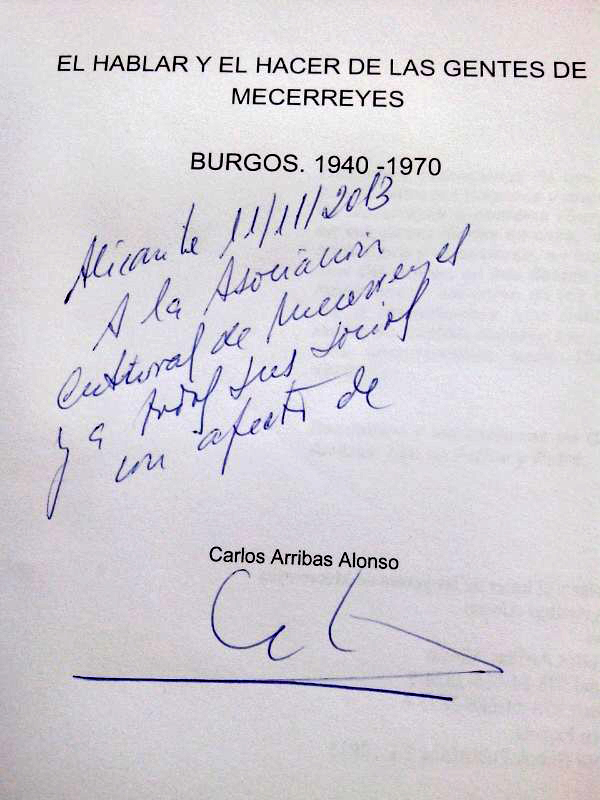 EL HABLAR Y EL HACER DE LAS GENTES DE
MECERREYES
BURGOS. 1940 -1970
Alicante 11/11/2013
A la Asociación
Cultural de Mecerreyes
y a todos sus socios
con afecto de
Carlos Arribas Alonso